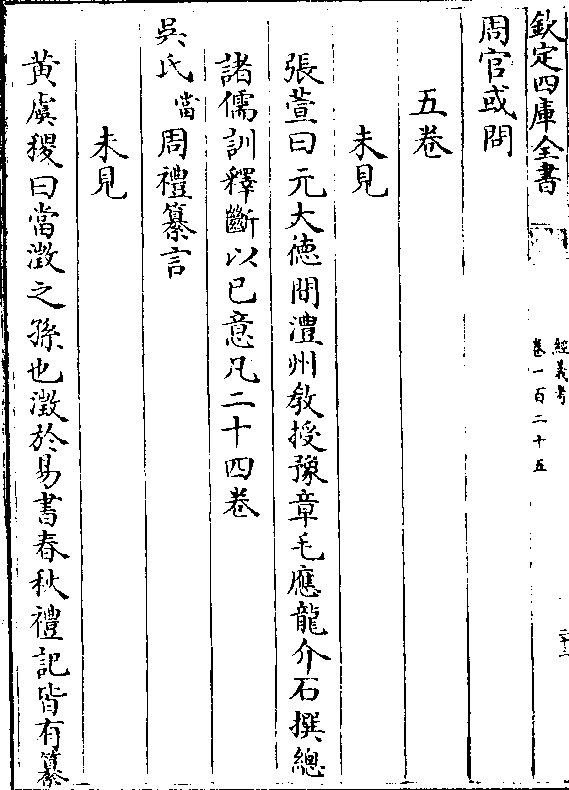 欽定四庫全書
經義考
卷一百二十五
二十三
周官或問
五卷
未見
張萱曰元大徳間澧州教授豫章毛應龍介石撰總
諸儒訓釋斷以已意凡二十四卷
吳氏當周禮纂言
未見
黄虞稷曰當澂之孫也澂於易書春秋禮記皆有纂